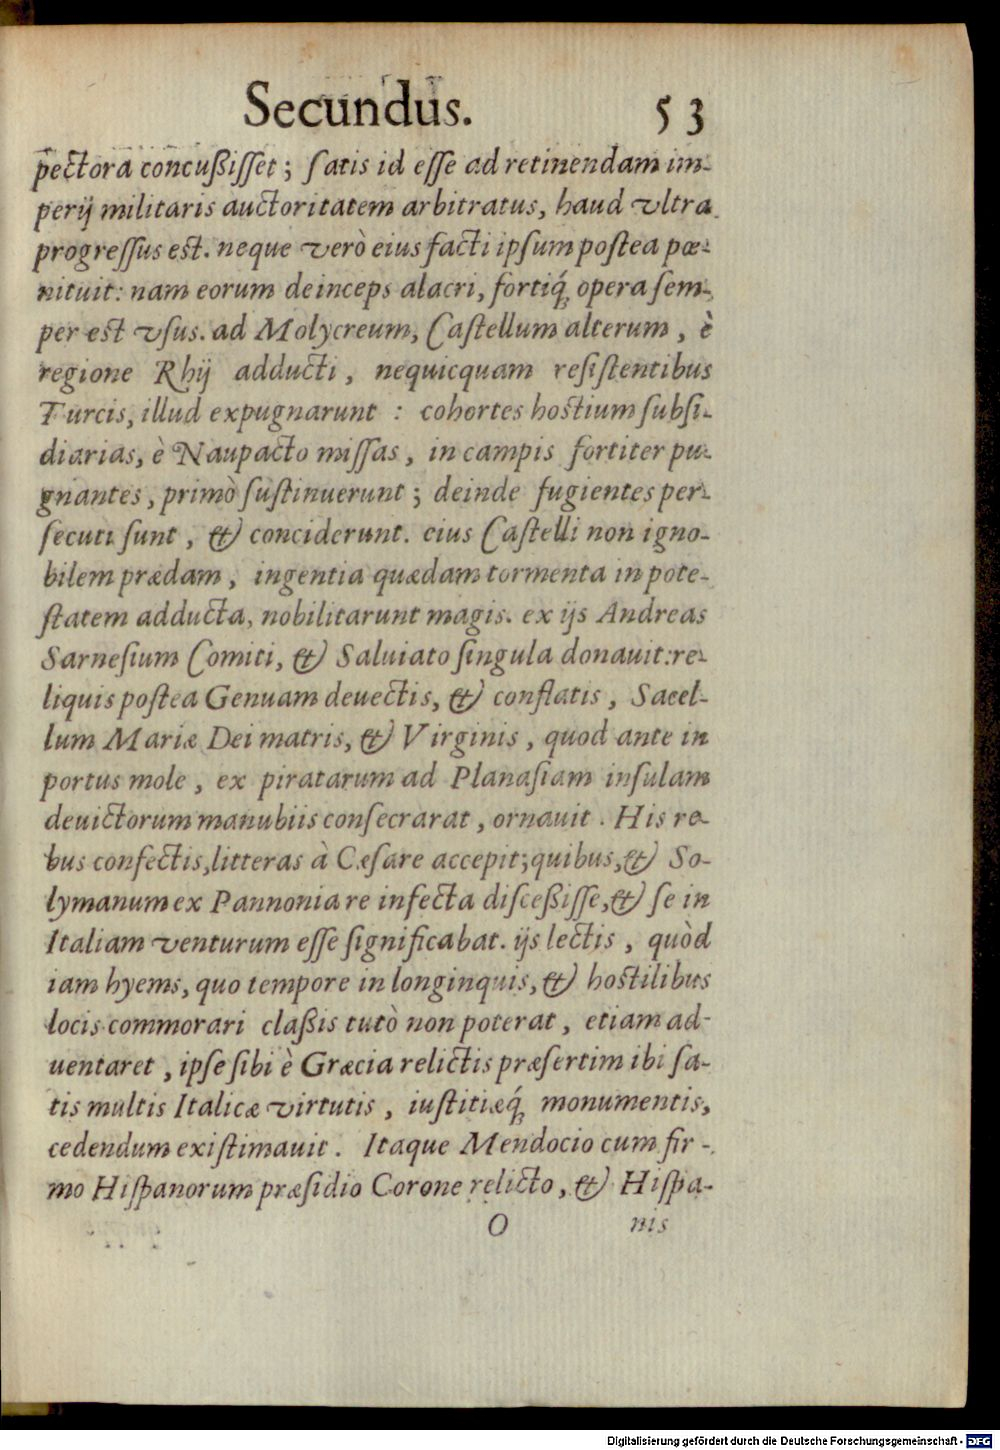 Secundus. 53
pectora concußisſet; ſatis id eſſe ad retinendam im-
perij militaris auctoritatem arbitratus, haud vltra
progreſſus est. neque verò eius facti ipſum poſtea pœ-
nituit: nam eorum deinceps alacri, fortiq́; opera ſem-
per est vſus. ad Molycreum, Caſtellum alterum, è
regione Rhij adducti, nequicquam reſiſtentibus
Turcis, illud expugnarunt : cohortes hostium ſubſi-
diarias, è Naupacto miſſas, in campis fortiter pu-
gnantes, primò ſustinuerunt; deinde fugientes per-
ſecuti ſunt, & conciderunt. eius Caſtelli non igno-
bilem prædam, ingentia quædam tormenta in pote-
ſtatem adducta, nobilitarunt magis. ex ijs Andreas
Sarneſium Comiti, & Saluiato ſingula donauit: re-
liquis poſtea Genuam deuectis, & conflatis, Sacel-
lum Mariæ Dei matris, & Virginis, quod ante in
portus mole, ex piratarum ad Planaſiam inſulam
deuictorum manubiis conſecrarat, ornauit. His re-
bus confectis, litteras à Cæſare accepit; quibus, & So-
lymanum ex Pannonia re infecta diſceßiſſe, & ſe in
Italiam venturum eſſe ſignificabat. ijs lectis, quòd
iam hyems, quo tempore in longinquis, & hostilibus
locis commorari claßis tutò non poterat, etiam ad-
uentaret, ipſe ſibi è Græcia relictis præſertim ibi ſa-
tis multis Italicæ virtutis, iuſtitiæq́; monumentis,
cedendum exiſtimauit. Itaque Mendocio cum fir-
mo Hiſpanorum præſidio Corone relicto, & Hiſpa-
O nis
Digitalisierung gefördert durch die Deutsche Forschungsgemeinschaft - DFG